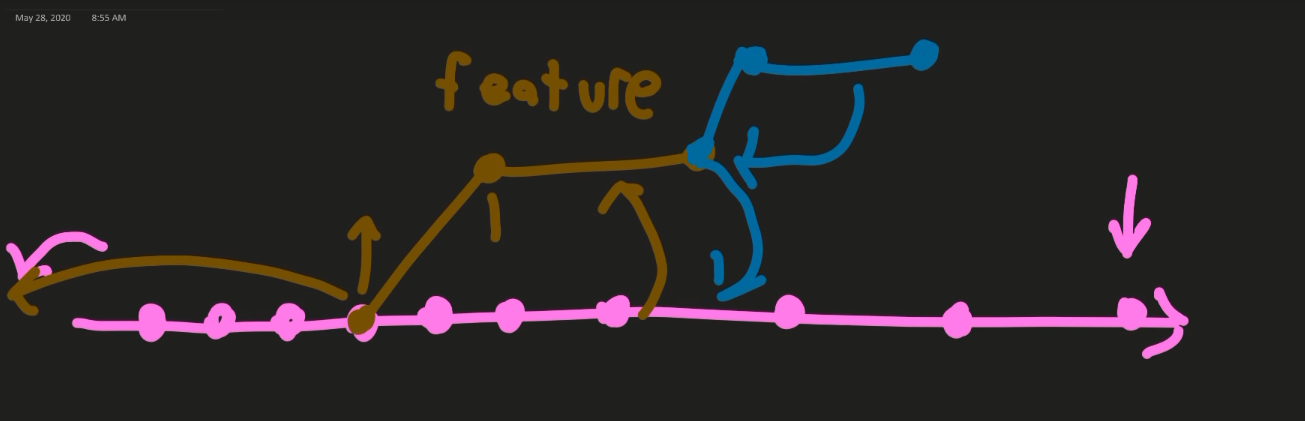 May 28, 2020 8:55 AM
feature